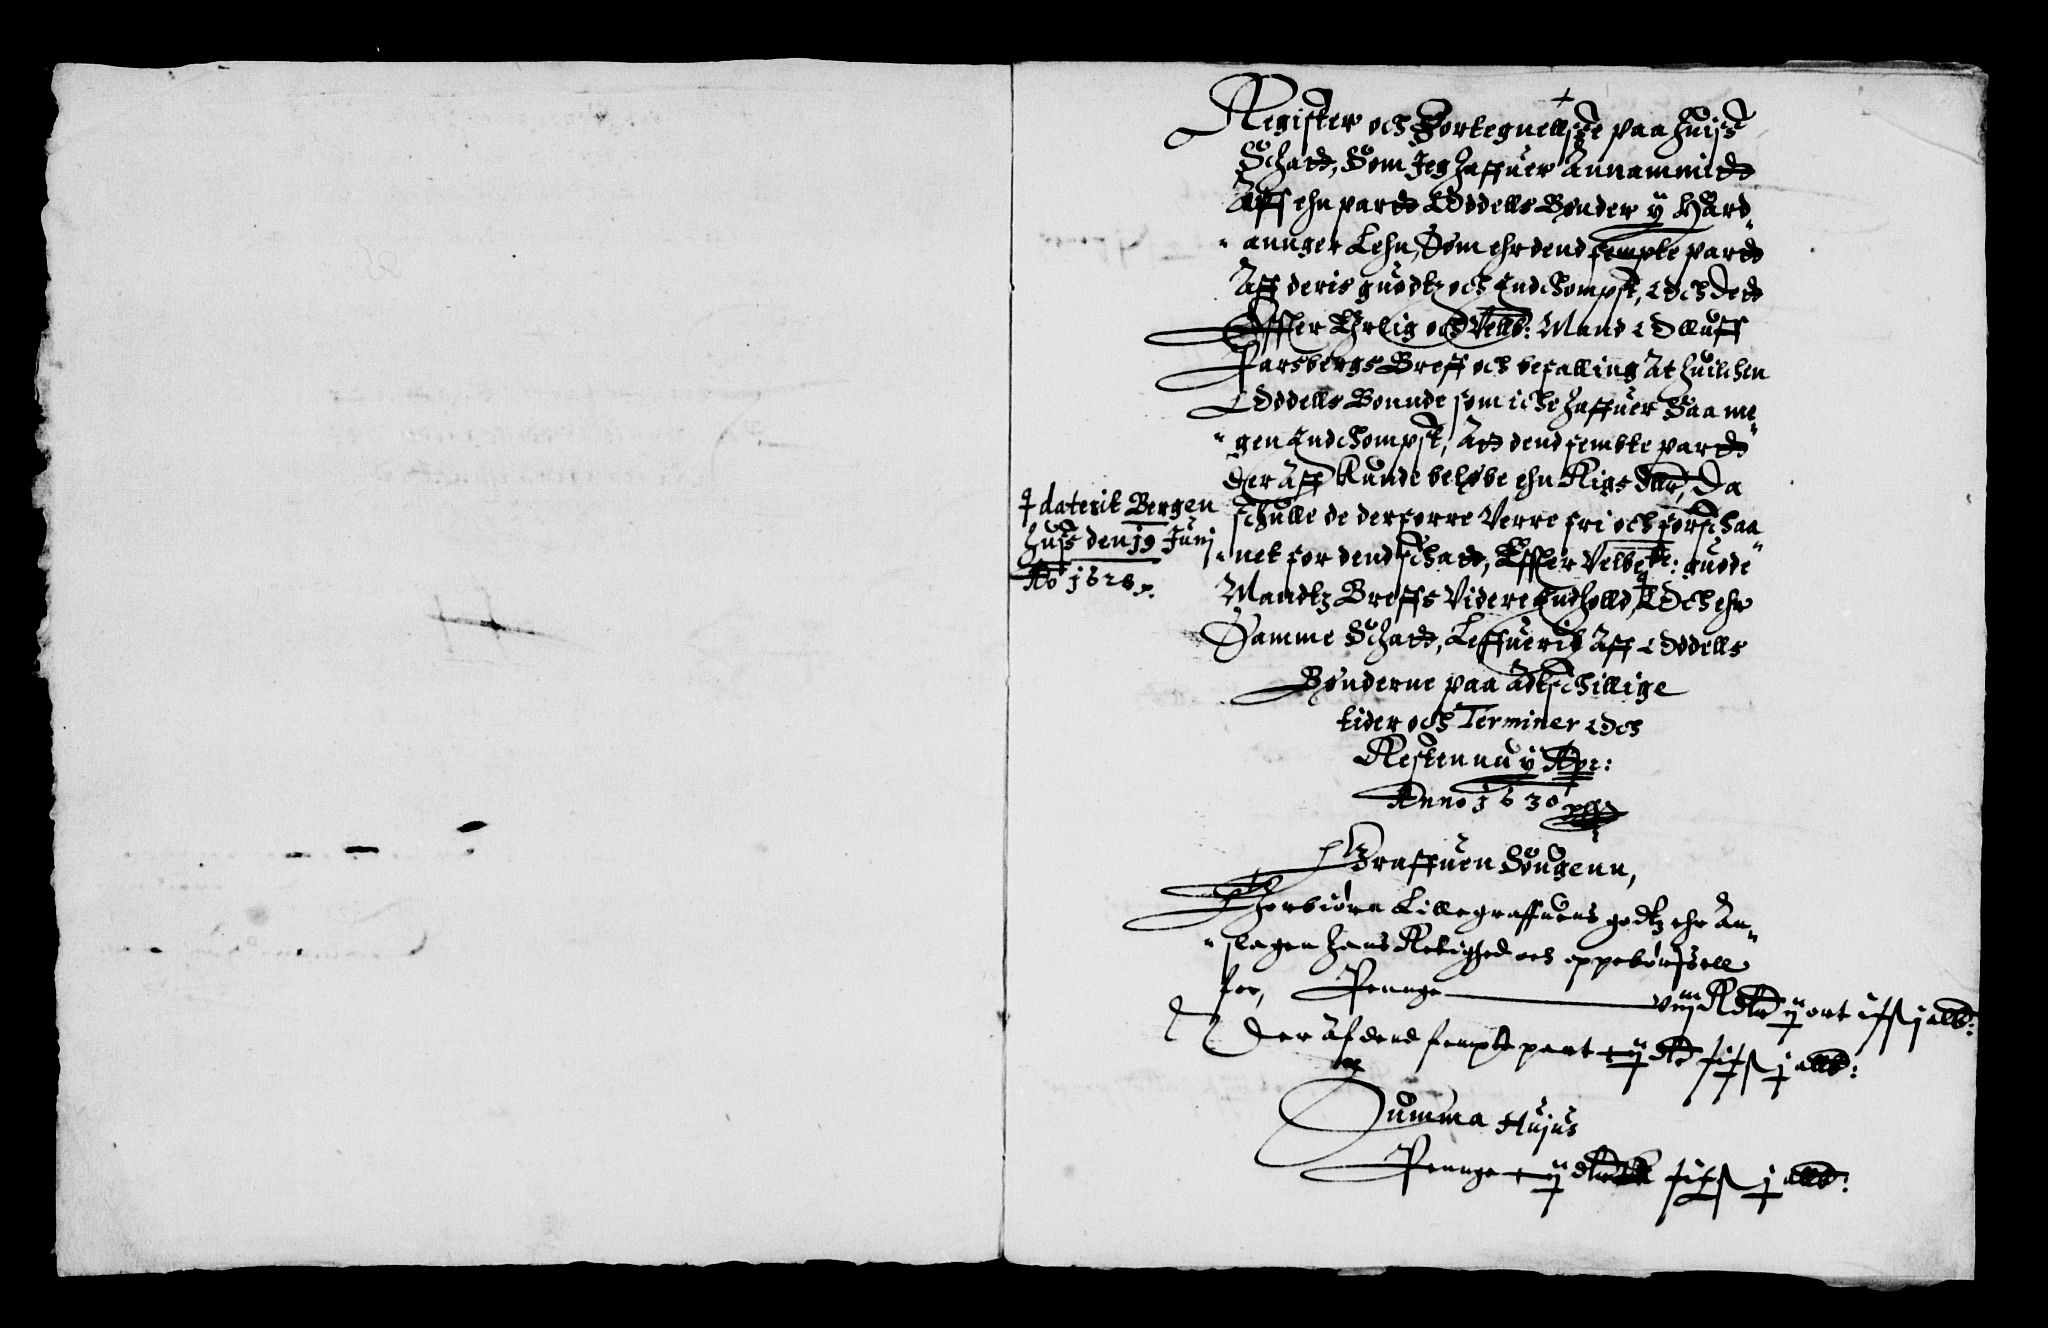 Register och Fortegnellsze paa huisz
Schatt, Som Jeg haffuer Annammitt
Aff ehn partt Oddells Bønder y Hard-
annger Lehn, Som ehr dend fempte partt
Aff deris guodtz och Indchompst, Och dett
Effter Ehrlig och Velb: Mand Olluff
Parsbergs Breff och befalling At huilchen
Oddells Bonnde som iche haffuer Saa me-
gen Indchompst, Att dend fembte partt
der Aff Kunde beløbe ehn Rigs dallr, Da
schulle de derforre Verre fri och forschaa-
net for dend schatt, Effter Velbe.te: guode
Mandtz Breffs Videre Indholld, Och ehr
Samme Schatt, Leffuerit Aff Oddells
Bønderne paa Adtschillige
tider och Terminer Och
Resten nu y
Anno 1630
daterit Bergen
husz den 19 Junj
Ao 1628
Graffuen Sougenn,
Thorbiørn Lillegraffuens godtz ehr An-
slagen hans Retighed och oppebørsell
for, Penge viij Rdlr ij ort j alb:
Der af dend fempte part j albr:
Summa Hujus
Penge j albr: